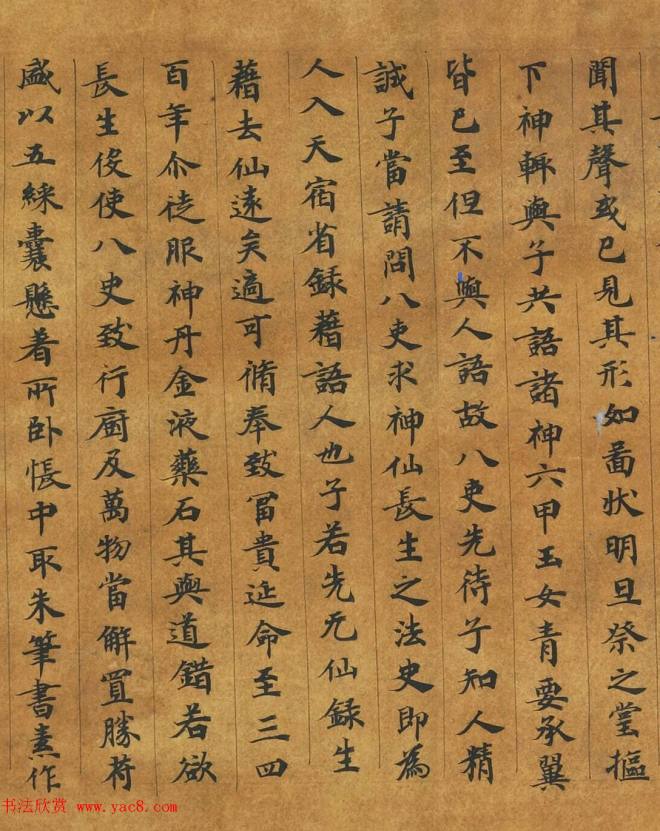 聞其聲或已見其形如啚狀明旦祭之堂摳
下神輙與子共語諸神六甲玉女青要承翼
皆已至但不與人語故八吏先待子知人精
誠子當請問八吏求神仙長生之法史即為
人入天宿省録藉語人也子若先无仙録生
藉去仙遠矣適可脩奉致冨貴延命至三四
百年尒徒服神丹金液藥石其與道錯若欲
長生役使八史致行廚及萬物當解置勝符
盛以五綵囊懸著所卧悵中取朱筆書素作
书法欣赏 www.yac8.com